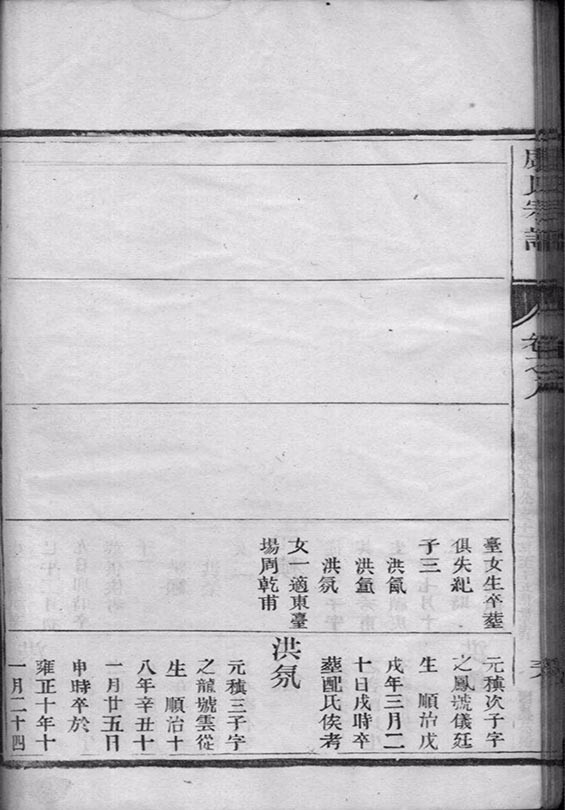 氏宗譜
卷之八
臺女生卒塟
俱失紀
子三
洪氤
洪氲
洪氛
女一適東臺
場周乾甫
元積次子字
之鳳號儀廷
生 順治戊
戌年三月二
十日戌時卒
塟配氏俟考
洪氛
元積三子字
之龍號雲從
生 順治十
八年辛丑十
一月廿五日
申時卒於
雍正十年十
一月二十四